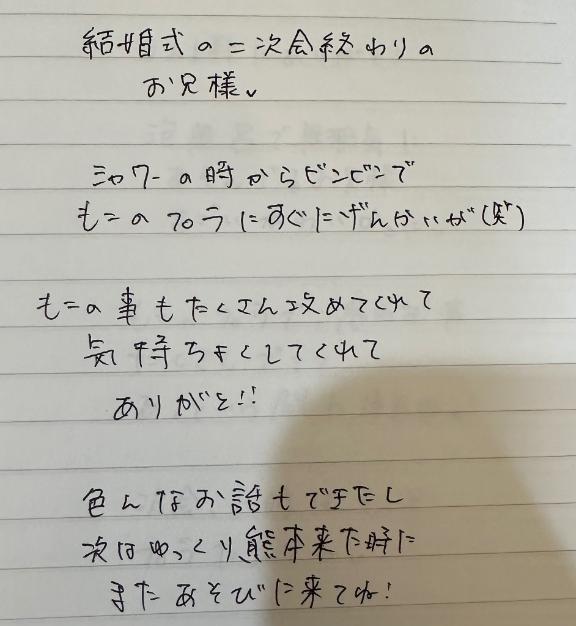 結婚式の二次会終わりの
お兄様、
シャワーの時からビンビンで
もこのフラにすぐにげんかいが(笑)
もこの事もたくさん攻めてくれて
気持ちよくしてくれて
ありがと!!
色んなお話もできたし
次はゆっくり熊本来た時に
またあそびに来てね!